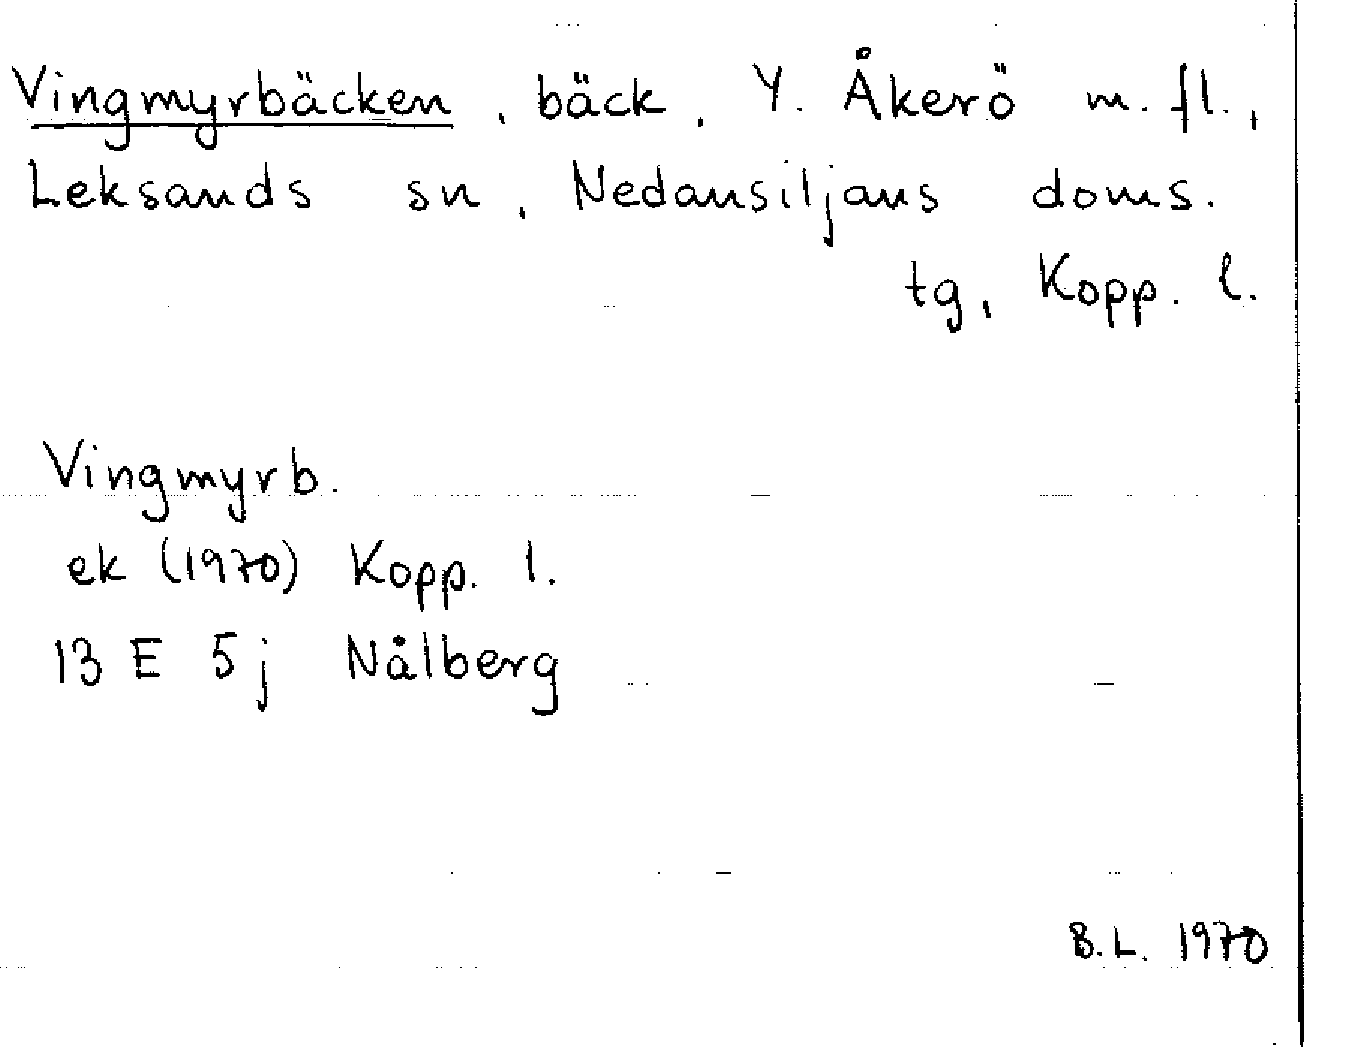 Vingmyrbäcken, bäck, Y. Åkerö m. fl.,
Leksands sn, Nedansiljans doms.
tg, Kopp. l.
Vingmyrb.
ek (1970) Kopp. l.
13 E 5j Nålberg
B.L. 1970